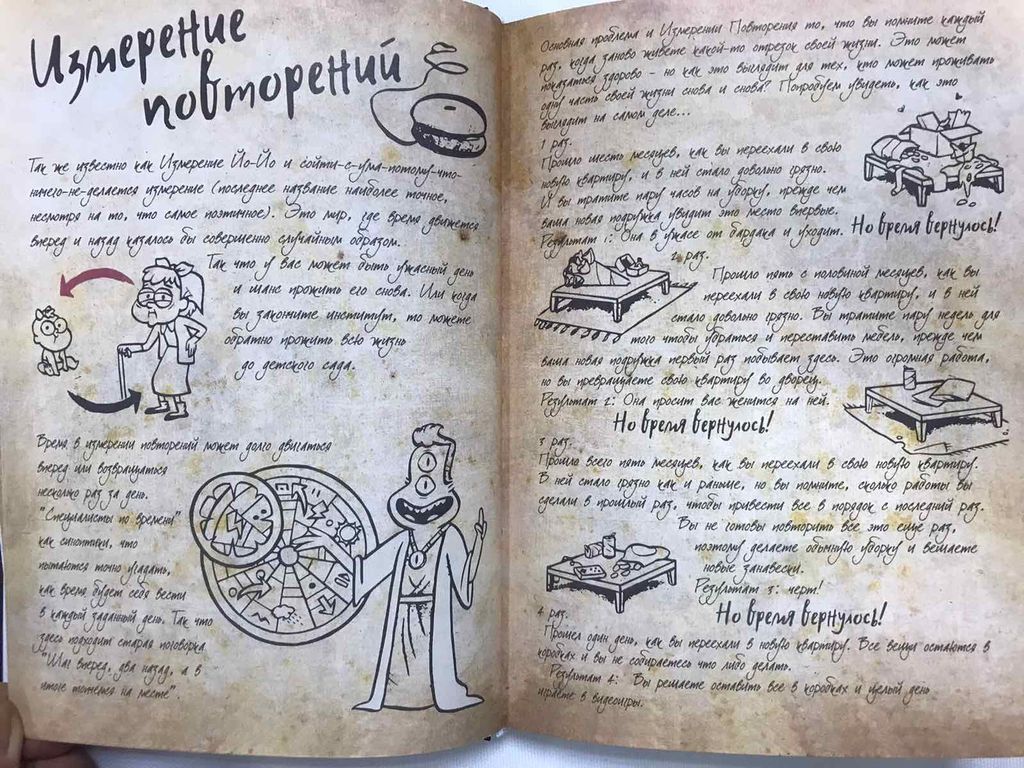 Измерение
повторений
Так же известно как Измерение Йо-Йо и сойти-с-ума-потому-что-
ничего-не-делается измерение (последнее название наиболее точное,
несмотря на то, что самое поэтичное). Это мир, где время движется
вперед и назад казалось бы совершенно случайным образом.
Так что у вас может быть ужасный день
и шанс прожить его снова. Или когда
вы закончите институт, то можете
обратно прожить всю жизнь
до детского сада.
Время в измерении повторений может долго двигаться
вперед или возвращаться
несколько раз за день.
"Специалисты по времени"
как синоптики, что
пытаются точно угадать,
как время будет себя вести
в каждый заданный день. Так что
здесь подходит старая поговорка
"Шаг вперед, два назад, а в
итоге топчется на месте".
Основная проблема и Измерении Повторения то, что вы помните каждый
раз, когда заново живете какой-то отрезок своей жизни. Это может
показаться здорово - но как это выглядит для тех, кто может проживать
одну часть своей жизни снова и снова? Попробуем увидеть, как это
выглядит на самом деле...
1 раз.
Прошло шесть месяцев, как вы переехали в свою
новую квартиру, и в ней стало довольно грязно.
И вы тратите пару часов на уборку, прежде чем
ваша новая подружка увидит это место впервые.
Результат 1: Она в ужасе от бардака и уходит.
Но время вернулось!
2 раз.
Прошло пять с половиной месяцев, как вы
переехали в свою новую квартиру, и в ней
стало довольно грязно. Вы тратите пару недель для
того чтобы убраться и переставить мебель, прежде чем
ваша новая подружка первый раз побывает здесь. Это огромная работа,
но вы превращаете свою квартиру во дворец.
Результат 2: Она просит вас женится на ней.
Но время вернулось!
3 раз.
Прошло всего пять месяцев, как вы переехали в свою новую квартиру.
В ней стало грязно как и раньше, но вы помните, сколько работы вы
сделали в прошлый раз, чтобы привести все в порядок с последний раз.
Вы не готовы повторить все это еще раз,
поэтому делаете обычную уборку и вешаете
новые занавески.
Результат 3: черт!
Но время вернулось!
4 раз.
Прошел один день, как вы переехали в новую квартиру. Все вещи остаются в
коробках и вы не собираетесь что либо делать.
Результат 4: Вы решаете оставить все в коробках и целый день
играете в видеоигры.